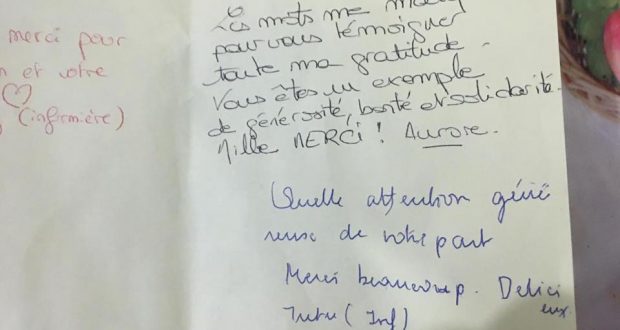 merci pour
et votre
(infirmière)
Les mots me
pour vous témoigner
toute ma gratitude.
Vous êtes un exemple
de générosité, bonté et solidarité.
Mille MERCI ! Aurore.
Quelle attention géné
reuse de votre part
Merci beaucoup. Delici
eux.
(Inf)